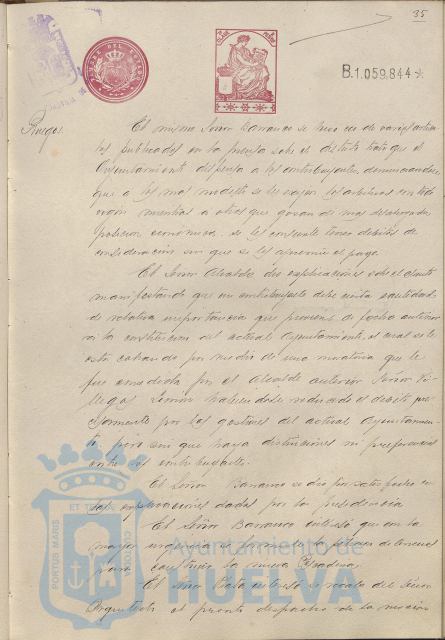 35
TIMBRE DEL ESTADO
B.1.059.844
Ruegos.
El mismo Señor Barranco se hizo eco de varios artícu-
los publicados en la prensa sobre el distinto trato que el
Ayuntamiento dispensa a los contribuyentes, denunciandose
que a los mas modestos se les exijen los arbitrios con todo
rigor mientras a otros que gozan de mas desahogada
posicion económica, se les consiente tener debitos de
consideracion sin que se les apremie al pago.
El Señor Alcalde dio explicaciones sobre el asunto
manifestando que un contribuyente debe cierta cantidad
de relativa importancia que proviene de fecha anterior
a la constitucion del actual Ayuntamiento, el cual se le
está cobrando por medio de una moratoria que le
fue concedida por el Alcalde anterior Señor Vi-
llegas, habiendose reducido el debito
por las gestiones del actual Ayuntamien-
to, pero sin que haya distinciones ni preferencias
entre los contribuyentes.
El Señor Barranco se dio por satisfecho con
las explicaciones dadas por la presidencia
El Señor Barranco interesó que con la
mayor urgencia se
para construir la nueva
El Señor interesó se recabe del Señor
Arquitecto el pronto despacho de la
Ayuntamiento de
HUELVA
PORTUS MARIS ET TERRAE CUSTODIA